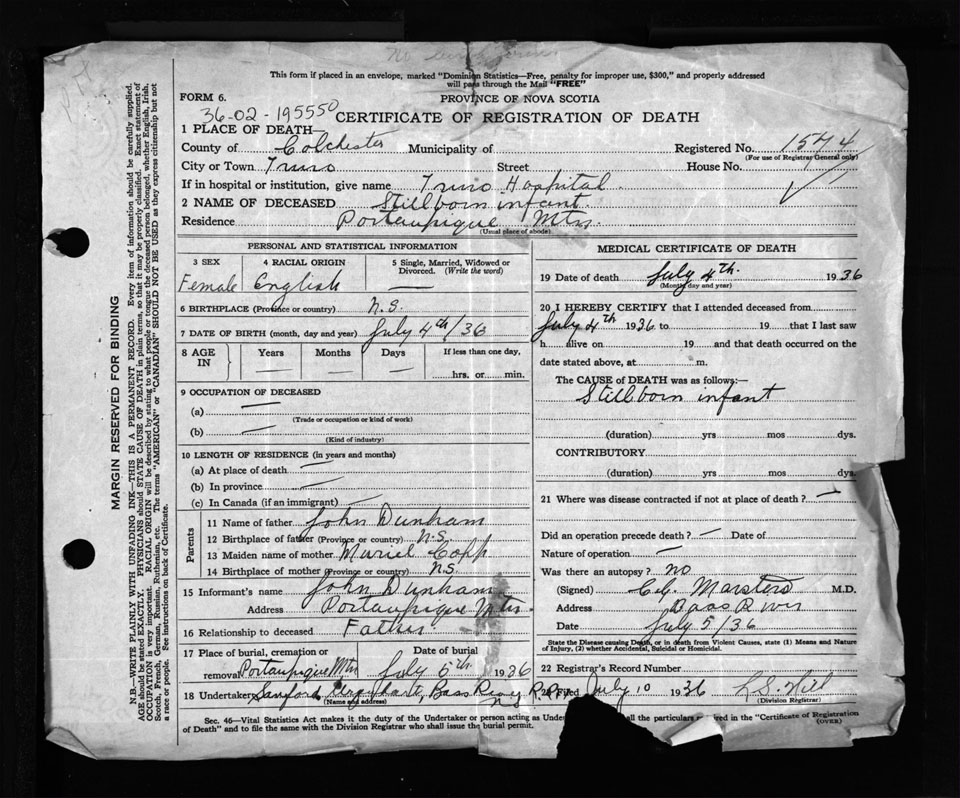 This form if placed in an envelope, marked "Dominion Statistics—Free, penalty for improper use, $300," and properly addressed
will pass through the Mail "FREE"
FORM 6.
PROVINCE OF NOVA SCOTIA
36-02-195550
CERTIFICATE OF REGISTRATION OF DEATH
1 PLACE OF DEATH—
County of Colchester Municipality of Registered No. 1544
(For use of Registrar General only)
City or Town Truro Street House No.
If in hospital or institution, give name Truro Hospital
2 NAME OF DECEASED Stillborn infant
Residence Portaupique Mtn
(Usual place of abode)
PERSONAL AND STATISTICAL INFORMATION
3 SEX 4 RACIAL ORIGIN 5 Single, Married, Widowed or Divorced. (Write the word)
Female English —
6 BIRTHPLACE (Province or country) N.S.
7 DATE OF BIRTH (month, day and year) July 4th/36
8 AGE IN Years Months Days If less than one day,
— — — hrs. or min.
9 OCCUPATION OF DECEASED
(a) —
(Trade or occupation or kind of work)
(b) —
(Kind of industry)
10 LENGTH OF RESIDENCE (in years and months)
(a) At place of death —
(b) In province —
(c) In Canada (if an immigrant) —
Parents
11 Name of father John Dunham
12 Birthplace of father (Province or country) N.S.
13 Maiden name of mother Muriel Copp
14 Birthplace of mother (Province or country) N.S.
15 Informant's name John Dunham
Address Portaupique Mtn
16 Relationship to deceased Father
17 Place of burial, cremation or removal Portaupique Mtn Date of burial July 5th 1936
18 Undertaker Bass River
(Name and address) N.S.
MEDICAL CERTIFICATE OF DEATH
19 Date of death July 4th 1936
(Month, day and year)
20 I HEREBY CERTIFY that I attended deceased from
July 4th 1936 to 19 that I last saw
h alive on 19 and that death occurred on the
date stated above, at m.
The CAUSE of DEATH was as follows:—
Stillborn infant
(duration) yrs mos dys.
CONTRIBUTORY
(duration) yrs mos dys.
21 Where was disease contracted if not at place of death? —
Did an operation precede death? — Date of
Nature of operation —
Was there an autopsy? no
(Signed) Marsters M.D.
Address Bass River
Date July 5/36
State the Disease causing Death, or in death from Violent Causes, state (1) Means and Nature
of Injury, (2) whether Accidental, Suicidal or Homicidal.
22 Registrar's Record Number
Filed July 10 1936
(Division Registrar)
Sec. 46—Vital Statistics Act makes it the duty of the Undertaker or person acting as all the particulars required in the "Certificate of Registration
of Death" and to file the same with the Division Registrar who shall issue the burial permit.
(OVER)
MARGIN RESERVED FOR BINDING
N.B.—WRITE PLAINLY WITH UNFADING INK—THIS IS A PERMANENT RECORD. Every item of information should be carefully supplied.
AGE should be stated EXACTLY. PHYSICIANS should STATE CAUSE OF DEATH in plain terms, so that it may be properly classified. Exact statement of
OCCUPATION is very important. RACIAL ORIGIN will be described by stating to what people or tongue the deceased person belonged, whether English, Irish,
Scotch, French, German, Russian, Ruthenian, etc. The terms "AMERICAN" or "CANADIAN" SHOULD NOT BE USED as they express citizenship but not
a race or people. See instructions on back of Certificate.